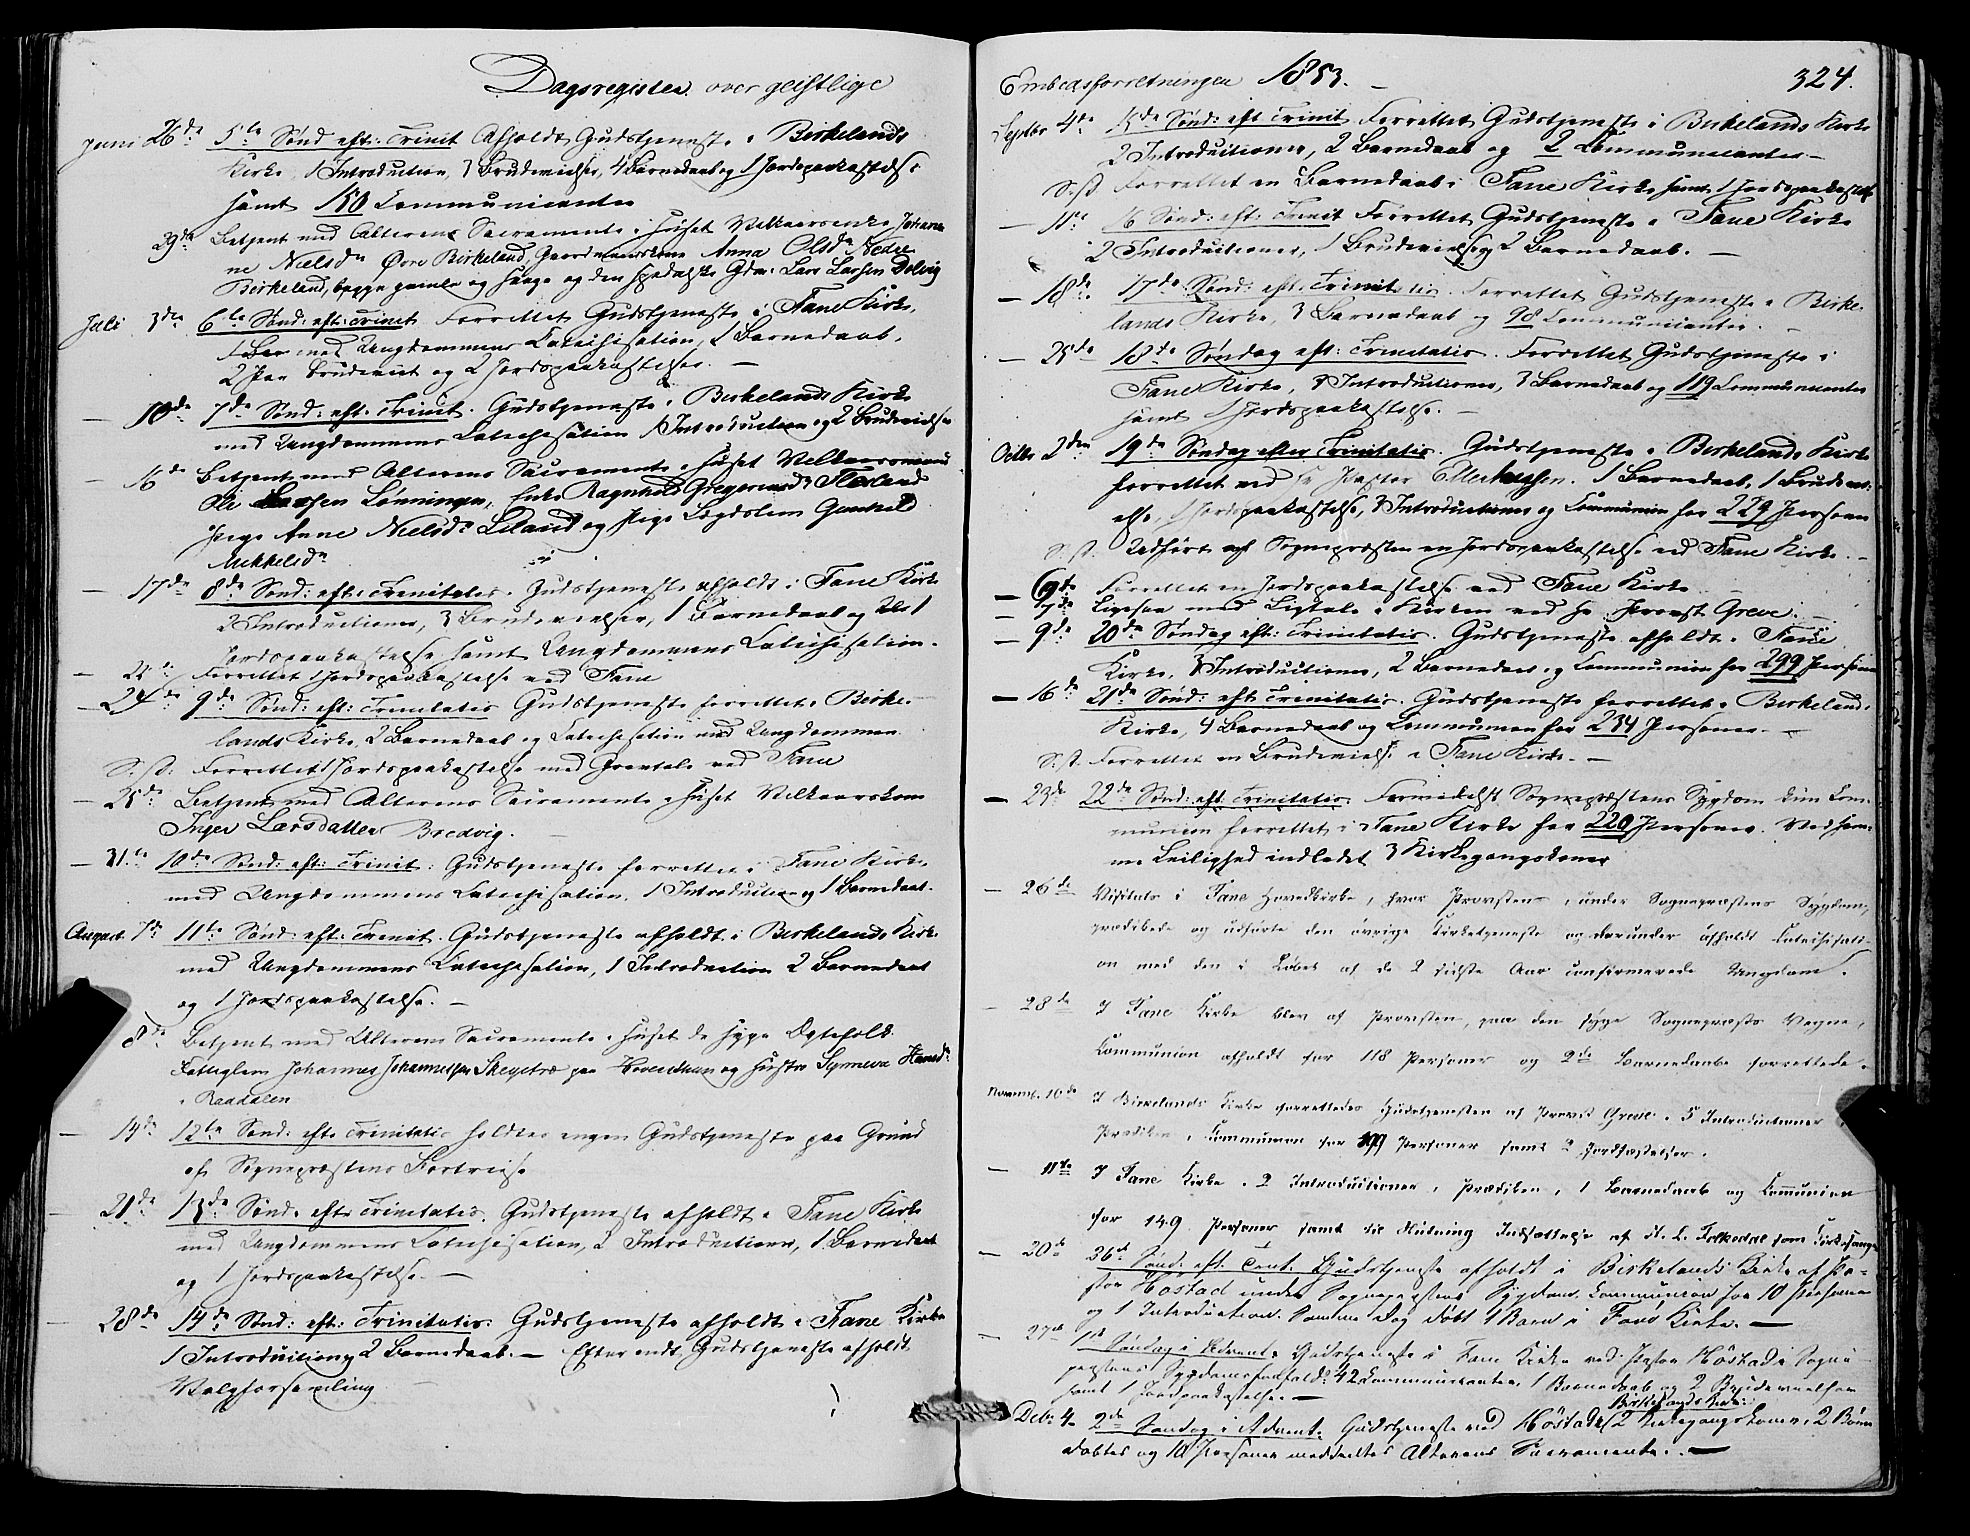 Dagsregister over geistlige
Juni 26de 5te Sønd eft: Trinit Afholdt Gudstjeneste i Birkelands
Kirke, 1 Introduction, 3 Brudevielser, 4 Barnedaab og 1 Jordspaakastelse
samt 150 Communicanter
29de Betjent med Alterens Sacramente i Huset Johan
ne Nielsdr Øvre Birkeland, Gaardmandskone Anna Olsdr Nedre
Birkeland, begge gamle og svage og den spedalske Gdm: Lars Larsen Dolvig
Juli 3die 6te Sønd: eft: Trinit. Forrettet Gudstjeneste i Fane Kirke,
med Ungdommens Catechisation, 1 Barnedaab,
2 Par Brudeviet og 2 Jordspaakastelser. —
— 10de 7de Sønd: eft: Trinit. Gudstjeneste i Birkelands Kirke
med Ungdommens Catechisation 1 Introduction og 2 Brudevielser
— 16de Betjent med Alterens Sacramente i Huset Velkaarsmand
Ole Larsen Lønningen, Enke Ragnhild Gregoriusdr Flesland
Pige Anne Nielsdr Liland og Pige Lægdslem Gunhild
Mikkelsdr
— 17de 8de Sønd: eft: Trinitatis. Gudstjeneste afholdt i Fane Kirke
2 Introductioner, 3 Brudevielser, 1 Barnedaab og 1
Jordspaakastelse samt Ungdommens Catechisation.
— 22de Forrettet 1 Jordspaakastelse ved Fane
— 24de 9de Sønd: eft: Trinitatis Gudstjeneste forrettet i Birke-
lands Kirke, 2 Barnedaab og Catechisation med Ungdommen
S: D: Forrettet 1 Jordspaakastelse med Gravtale ved Fane
— 25de Betjent med Alterens Sacramente i Huset Velkaarskone
Inger Larsdatter Bredvig. —
— 31te 10de Sønd: eft: Trinit: Gudstjeneste forrettet i Fane Kirke
med Ungdommens Catechisation, 1 Introduction og 1 Barnedaab.
August 7de 11te Sønd eft: Trinit. Gudstjeneste afholdt i Birkelands Kirke
med Ungdommens Catechisation, 1 Introduction 2 Barnedaab
og 1 Jordspaakastelse. —
8de Betjent med Alterens Sacramente i Huset de syge Ægtefolk
Fattiglem Johannes Johannessen Skeyetræ paa og Hustro Synneva Hansdr
i Raadalen
— 14de 12te Sønd: eft: Trinitatis holdtes ingen Gudstjeneste paa Grund
af Sognepræstens Bortreise
— 21de 13de Sønd. eft: Trinitatis. Gudstjeneste afholdt i Fane Kirke
med Ungdommens Catechisation, 2 Introductioner, 1 Barnedaab
og 1 Jordspaakastelse. —
— 28de 14de Sønd: eft: Trinitatis. Gudstjeneste afholdt i Fane Kirke
1 Introduction og 2 Barnedaab. — Efter endt Gudstjeneste afholdt
Valgforsamling —
Embedsforretninger 1853. — 324.
Septbr 4de 15de Sønd: eft Trinit Forrettet Gudstjeneste i Birkelands Kirke
2 Introductioner, 2 Barnedaab og 2 Communicanter —
S: D. Forrettet en Barnedaab i Fane Kirke samt 1 Jordspaakastelse
— 11te 16 Sønd: eft: Trinit Forrettet Gudstjeneste i Fane Kirke
2 Introductioner, 1 Brudevielse og 2 Barnedaab. —
— 18de. 17de Sønd: eft: Trinitatis. Forrettet Gudstjeneste i Birke-
lands Kirke, 3 Barnedaab og 98 Communicanter. —
— 25de 18de Søndag eft: Trinitatis. Forrettet Gudstjeneste i
Fane Kirke, 3 Introductioner, 3 Barnedaab og 119 Communicanter
samt 1 Jordspaakastelse. —
Octbr 2den 19de Søndag efter Trinitatis. Gudstjeneste i Birkelands Kirke
forrettet ved Hr Pastor 1 Barnedaab, 1 Brudevi-
else, 1 Jordspaakastelse, 3 Introductioner og Communion for 229 Personer
S: D. Udført af Sognepræsten en Jordspaakastelse ved Fane Kirke. —
— 6te Forrettet en Jordspaakastelse ved Fane Kirke
— 7de Ligesaa med Ligtale i Kirken ved Hr Provst Greve.
— 9de 20de Søndag eft: Trinitatis. Gudstjeneste afholdt i Fane
Kirke, 3 Introductioner, 2 Barnedaab og Communion for 299 Personer
— 16de 21de Sønd: eft. Trinitatis. Gudstjeneste forrettet i Birkelands
Kirke, 4 Barnedaab og Communion for 234 Personer. —
S: D. Forrettet en Brudevielse i Fane Kirke. —
— 23de 22de Sønd: eft Trinitatis. Formedelst Sognepræstens Sygdom kun Com-
munion forrettet i Fane Kirke for 220 Personer. Ved sam-
me Leilighed indledet 3 Kirkegangskoner
— 26de Visitats i Fane Hovedkirke, hvor Provsten, under Sognepræstens Sygdom,
prædikede og udførte den øvrige Kirketjeneste og derunder afholdt Catechisati-
on med den i Løbet af de 2 sidste Aar confirmerede Ungdom.
— 28de I Fane Kirke blev af Provsten, paa den syge Sognepræsts Vegne,
Communion afholdt for 118 Personer og 2de Barnedaabe forrettede.
Novemb. 10de I Birkelands Kirke forrettedes Gudstjenesten af Provst Greve. 5 Introductioner,
Prædiken, Communion for 199 Personer samt 2 Jordfæstelser.
— 11te I Fane Kirke. 2 Introductioner, Prædiken, 1 Barnedaab og Communion
for 149 Personer samt Indsættelse af Folkedal som Kirkesanger
— 20de 26de Sønd. eft. Trint. Gudstjeneste afholdt i Birkelands Kirke af Pa-
stor Høstad under Sognepræstens Sygdom. Communion for 10 Personer
og 1 Introduction. Samme Dag døbt 1 Barn i Fane Kirke. —
— 27de 1ste Søndag i Advent. Gudstjeneste i Fane Kirke ved Pastor Høstad i Sogne-
præstens Sygdomsforfald. 42 Communicanter, 1 Barnedaab og 2 Brudevielser
samt 1 Jordspaakastelse. —
Decbr 4. 2de Søndag i Advent. Gudstjeneste ved Høstad i Birkelands Kirke: 2 Kirkegangskoner, 2 Børn
døbtes og 10 Personer meddeeltes Alterens Sacramente. —